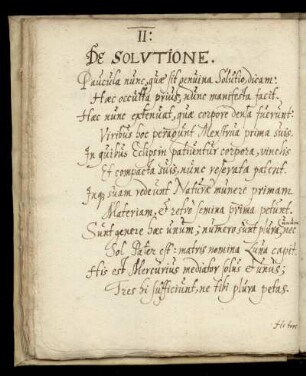 II:
DE SOLVTIONE.
Paucula nunc, quæ sit genuina Solutio, dicam:
Hæc occulta prius, nunc manifesta facit.
Hæc nunc extenuat, quæ corpore densa fuerunt:
Viribus hoc peragunt Menstrua prima suis.
In quibus Eclipsin patiuntur corpora, vinclis
Et compacta suis, nunc reserata patent.
Inq, suam redeunt Naturæ munere primam
Materiam, & retrò semina prima petunt.
Sunt genere hæc unum; numero sunt plura, nec
Sol Pater est: matris nomina Luna capit.
His est Mercurius mediator solus & unus;
Tres hi sufficiunt, ne tibi plura petas.
Hi tres